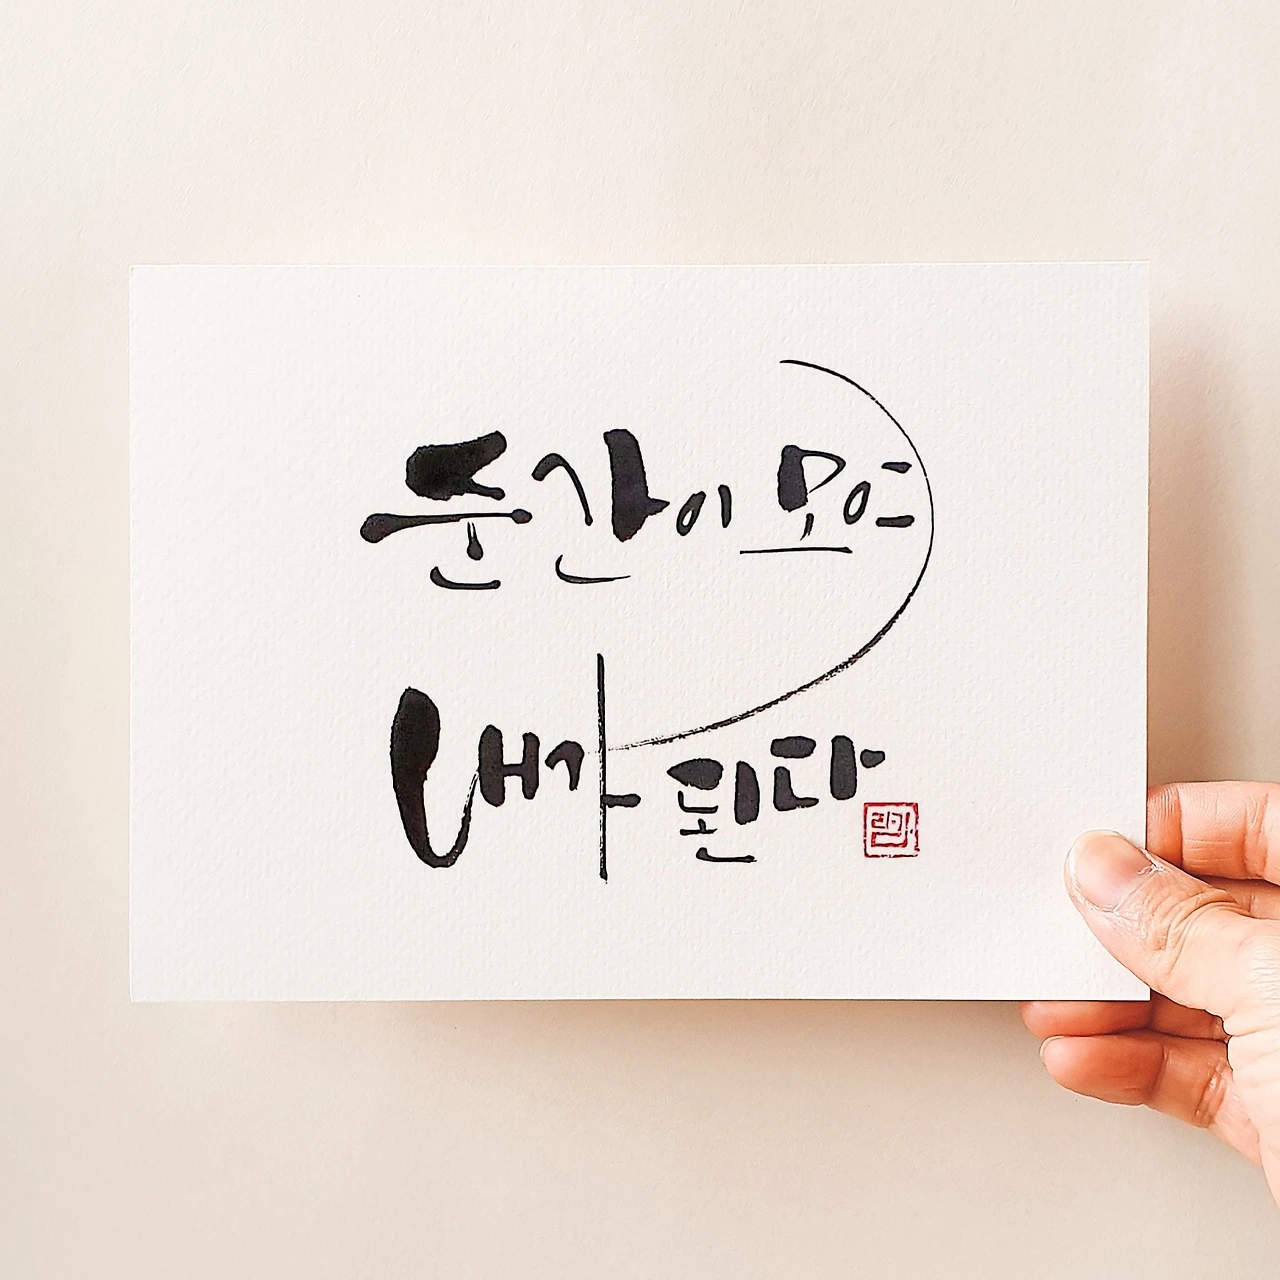 순간이 모여
내가 된다